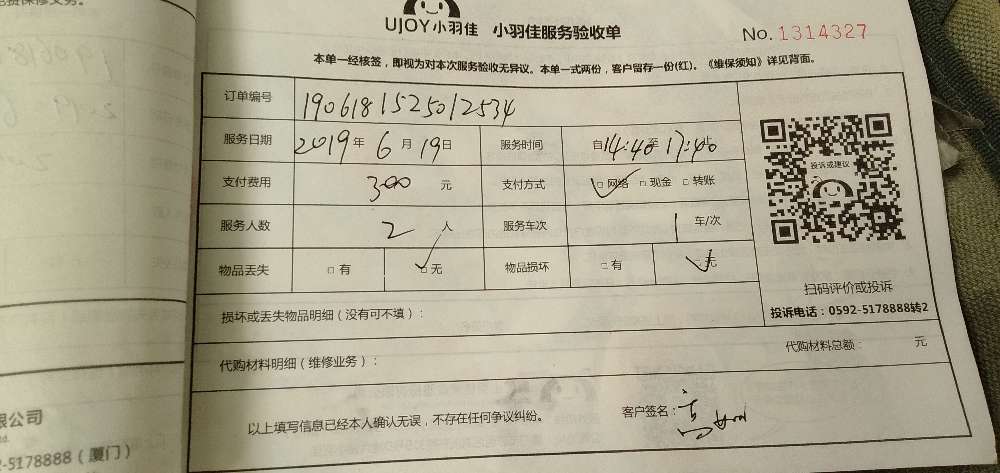 UJOY小羽佳 小羽佳服务验收单
No. 1314327
本单一经核签，即视为对本次服务验收无异议。本单一式两份，客户留存一份(红)。《维保须知》详见背面。
订单编号 1906181525012534
服务日期 2019年6月19日 服务时间 自14:40至17:40止
支付费用 300元 支付方式 □网络 □现金 □转账
服务人数 2人 服务车次 1车/次
物品丢失 □有 □无 物品损坏 □有 □无
投诉或建议
扫码评价或投诉
投诉电话：0592-5178888转2
损坏或丢失物品明细（没有可不填）：
代购材料明细（维修业务）： 代购材料总额： 元
以上填写信息已经本人确认无误，不存在任何争议纠纷。 客户签名：
限公司
td.
2-5178888（厦门）